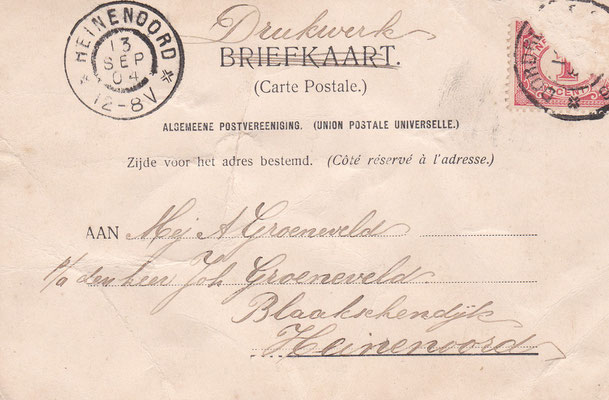 HEINENOORD
13
SEP
04
12-8V
Drukwerk
BRIEFKAART.
(Carte Postale.)
ALGEMEENE POSTVEREENIGING. (UNION POSTALE UNIVERSELLE.)
Zijde voor het adres bestemd. (Côté réservé à l'adresse.)
AAN Mej A Groeneveld
p/a den heer Joh Groeneveld
Blaakschendijk
Heinenoord
1
CENT